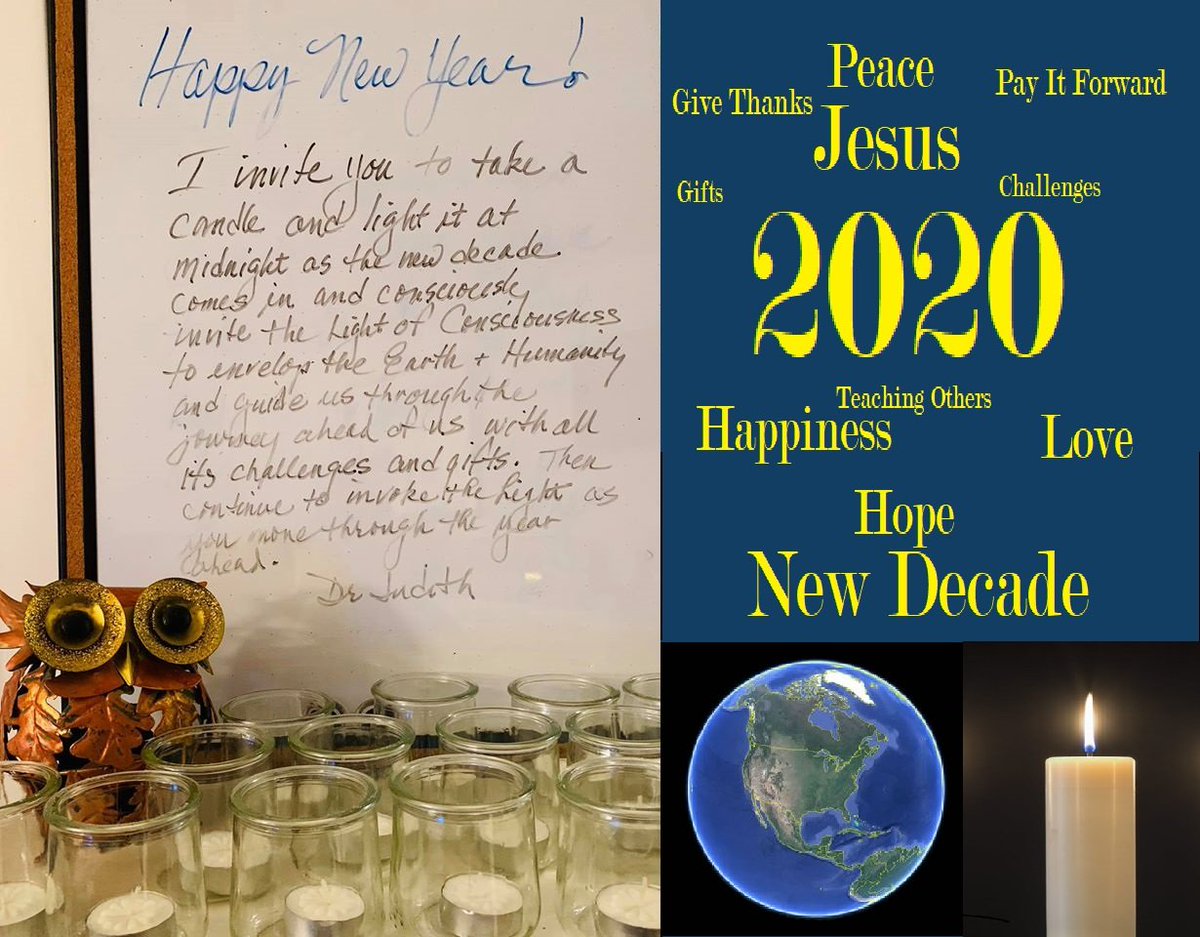 Happy New Year!
I invite you to take a
candle and light it at
midnight as the new decade
comes in and consciously
invite the Light of Consciousness
to envelop the Earth + Humanity
and guide us through the
journey ahead of us with all
its challenges and gifts. Then
continue to invoke the Light as
you move through the year
ahead.
Dr Judith
Peace
Give Thanks
Pay It Forward
Jesus
Gifts
Challenges
2020
Teaching Others
Happiness
Love
Hope
New Decade